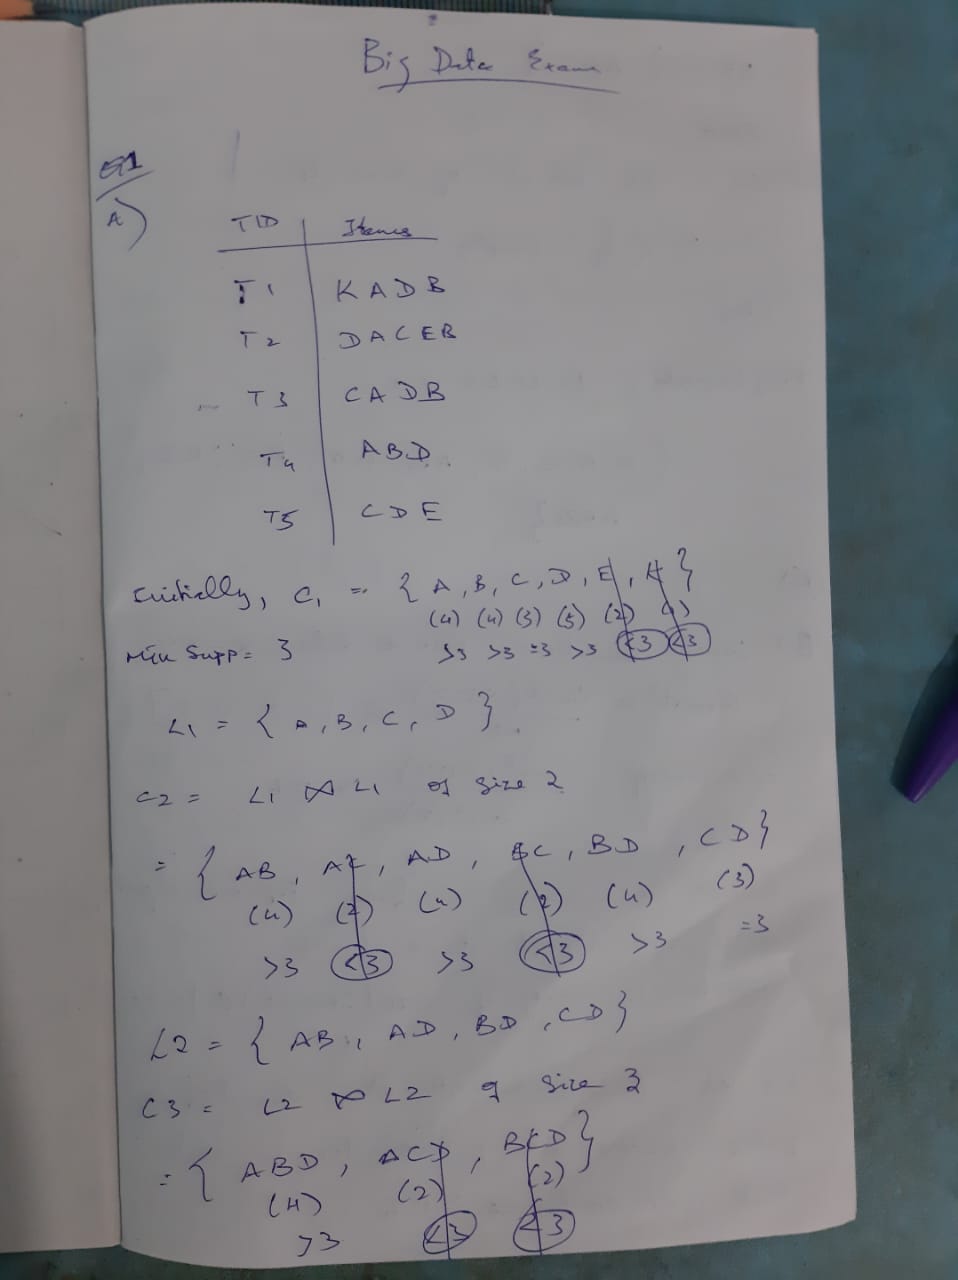 Big Data Exam
Q1
A)
TID Items
T1 KADB
T2 DACEB
T3 CADB
T4 ABD
T5 CDE
Initially, C1 = { A, B, C, D, E, K }
(4) (4) (3) (5) (2) (1)
Min Supp = 3 >3 >3 =3 >3 <3 <3
L1 = { A, B, C, D }
C2 = L1 ⋈ L1 of size 2
= { AB, AC, AD, BC, BD, CD }
(4) (2) (4) (2) (4) (3)
>3 <3 >3 <3 >3 =3
L2 = { AB, AD, BD, CD }
C3 = L2 ⋈ L2 of size 3
= { ABD, ACD, BCD }
(4) (2) (2)
>3 <3 <3